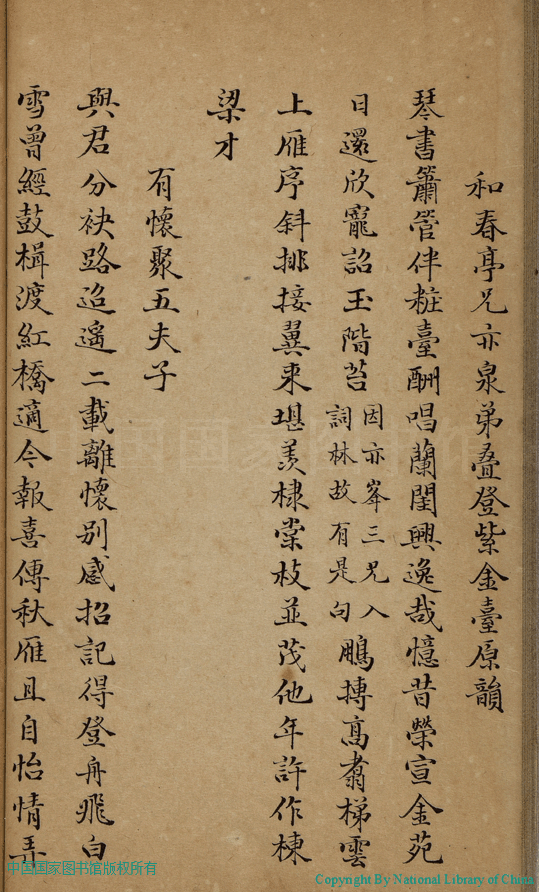 和春亭兄亦泉弟叠登紫金臺原韻
琴書簫管伴粧臺酬唱蘭閨興逸哉憶昔榮宣金苑
日還欣寵詔玉階苔因亦峯三兄入詞林故有是句鵬摶高翥梯雲
上雁序斜排接翼來堪羡棣棠枝並茂他年許作棟
梁才
有懷聚五夫子
與君分袂路迢遥二載離懷别感招記得登舟飛白
雪曾經鼓楫渡紅橋適今報喜傳秋雁且自怡情弄
中国国家图书馆
中国国家图书馆版权所有
Copyright By National Library of China